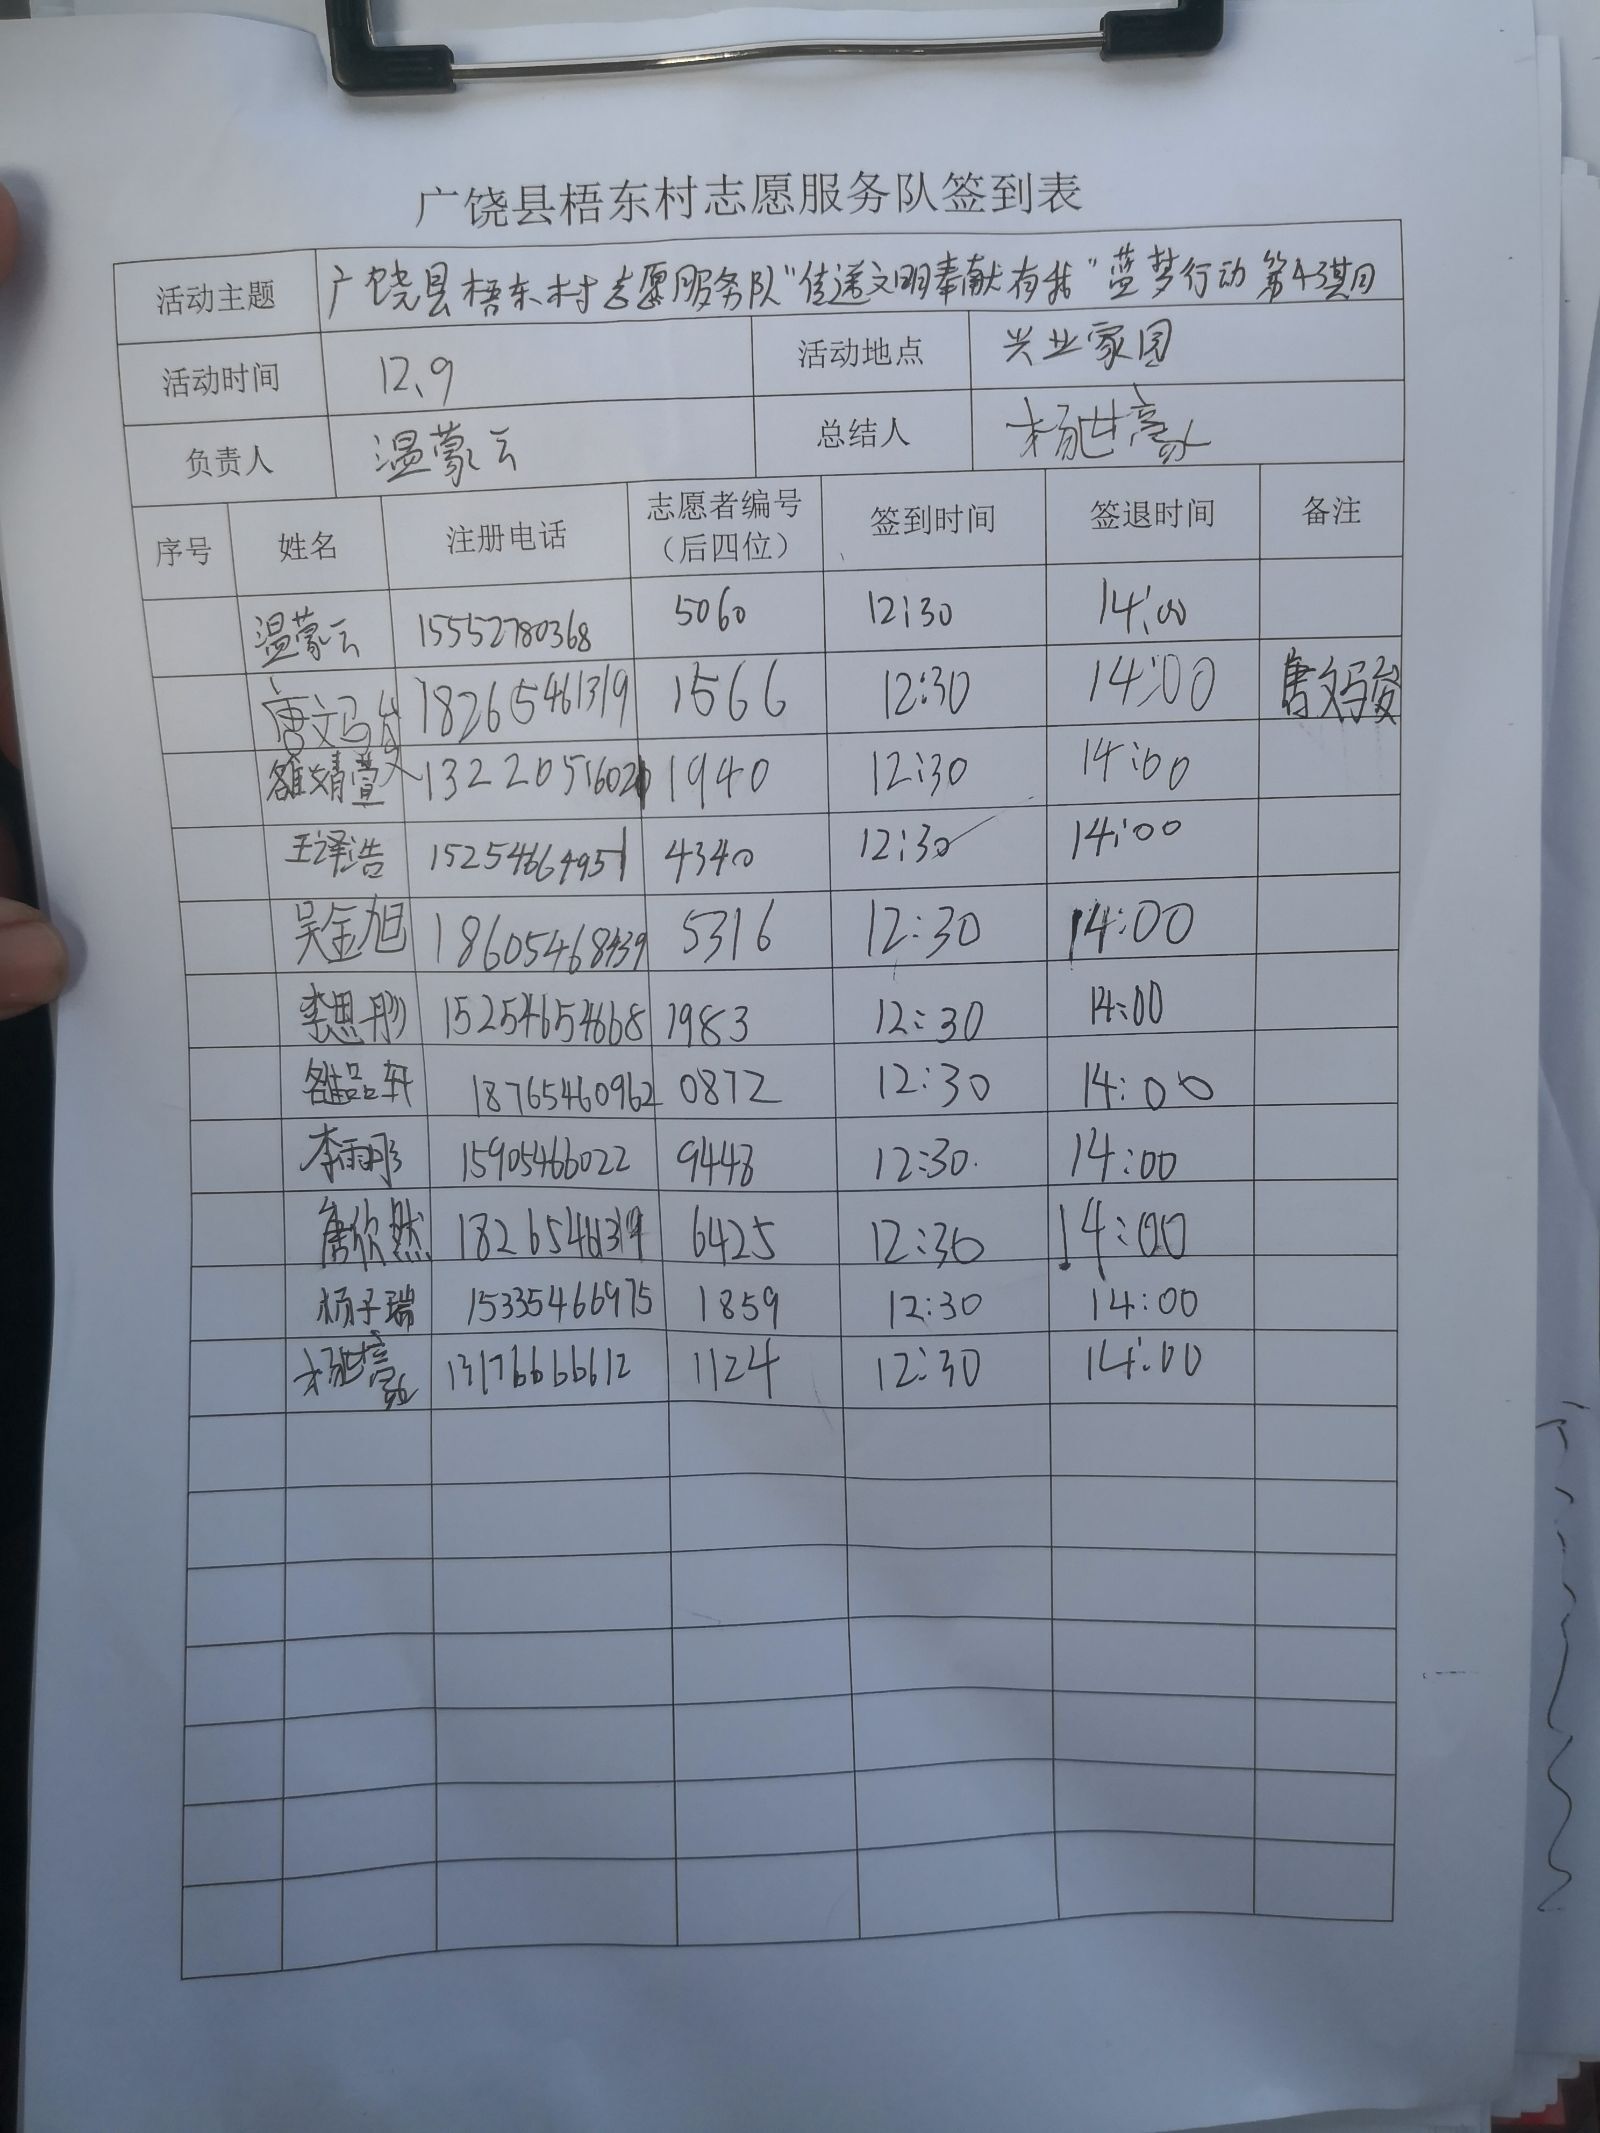 广饶县梧东村志愿服务队签到表
活动主题 广饶县梧东村志愿服务队“传递文明奉献有我”蓝梦行动第43期
活动时间 12.9 活动地点 兴业家园
负责人 温蒙云 总结人 杨世豪
序号 姓名 注册电话 志愿者编号（后四位） 签到时间 签退时间 备注
温蒙云 15552780368 5060 12:30 14:00
唐文骏 18265461319 1566 12:30 14:00 唐文骏
雒婧萱 1322051602 1940 12:30 14:00
王译浩 15254664951 4340 12:30 14:00
吴金旭 18605468439 5316 12:30 14:00
李思彤 15254654668 1983 12:30 14:00
雒品轩 18765460962 0872 12:30 14:00
李雨彤 15905466022 9448 12:30 14:00
唐欣然 18265461319 6425 12:30 14:00
杨子瑞 15335466975 1859 12:30 14:00
杨世豪 13176666612 1124 12:30 14:00